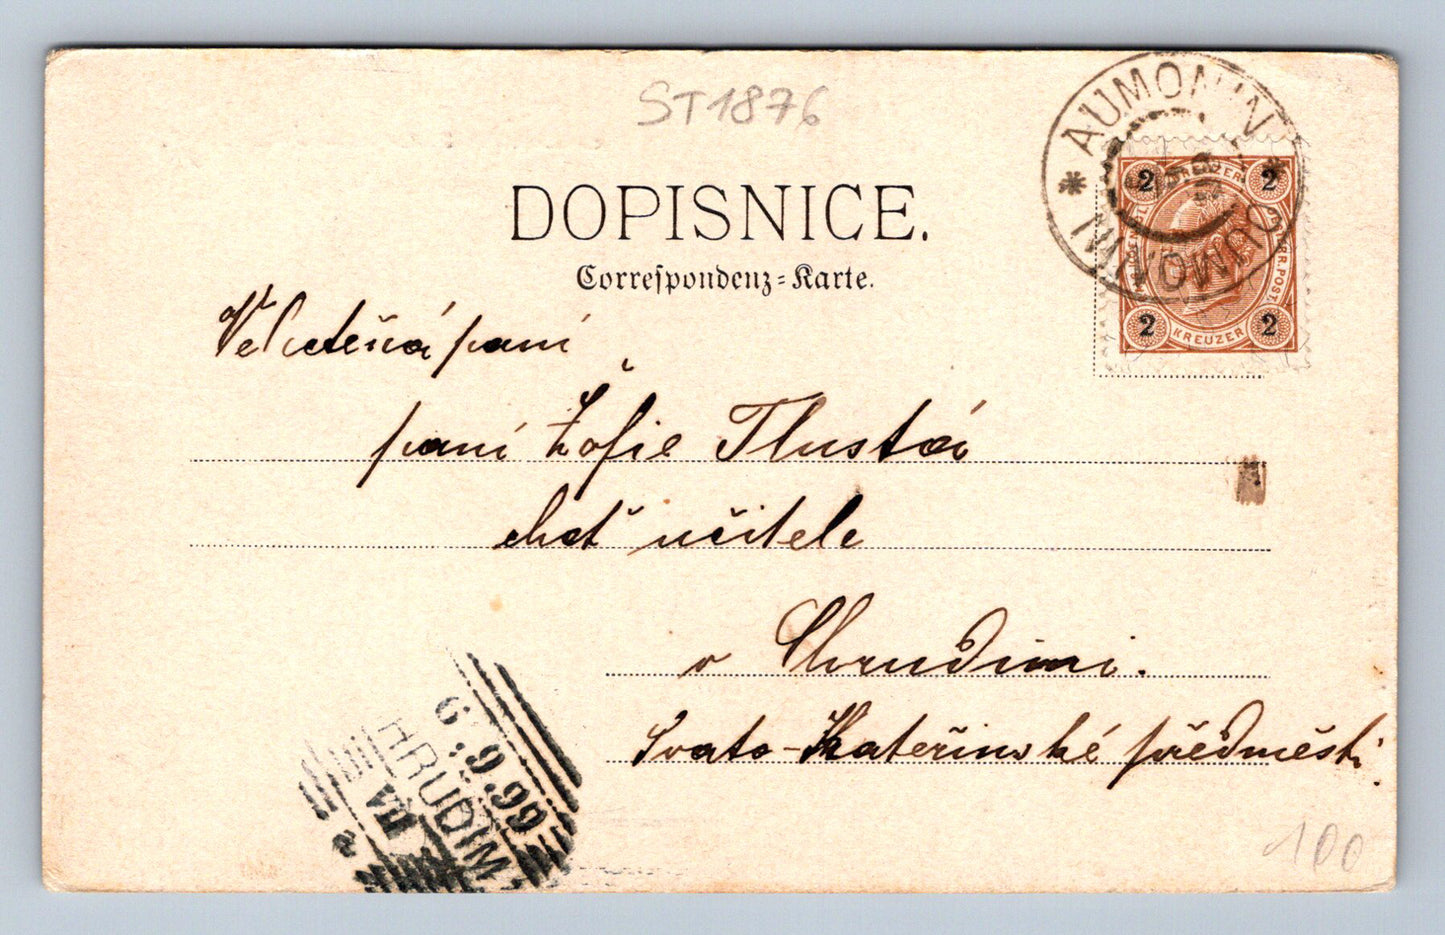 ST1876
AUMONÍN
OUMONIN
2 KREUZER 2
2 KREUZER 2
DOPISNICE.
Correſpondenz=Karte.
Velectěná paní
paní Žofie Tlustá
choť učitele
v Chrudimi.
Svato-Kateřinské předměstí.
CHRUDIM
6.9.99
VII
100